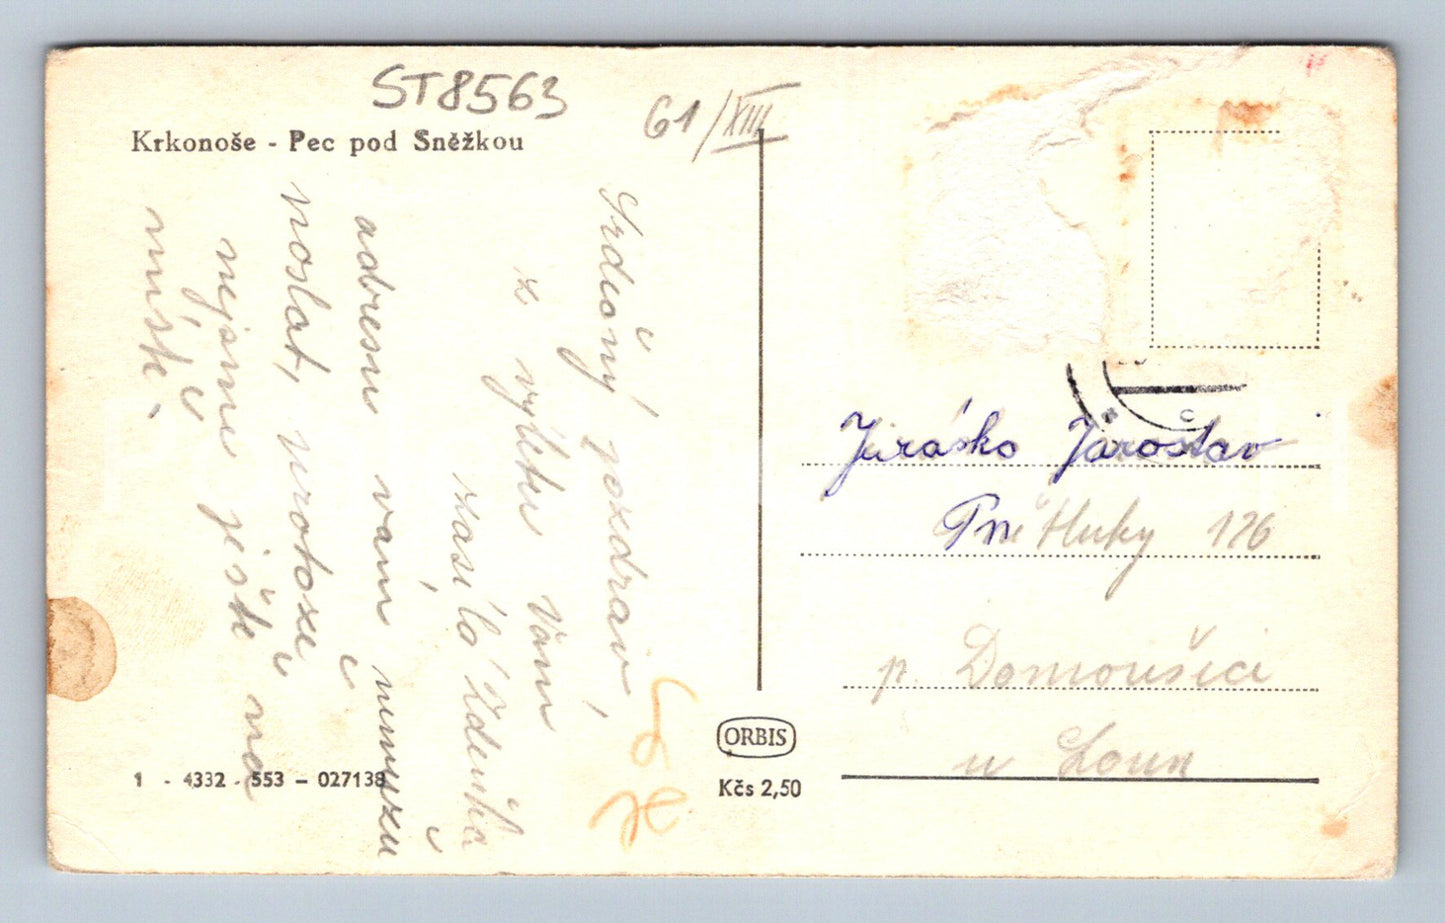 ST8563
61/XIII
Krkonoše - Pec pod Sněžkou
Srdečný pozdrav,
z výletu Vám
zasílá Zdeňka
adresu vám nemužu
poslat, protože
nejsme ještě na
místě.
1 - 4332 - 553 - 027138
ORBIS
Kčs 2,50
Jirásko Jaroslav
Pně Hluky 126
p. Domoušici
u Loun